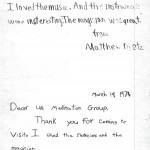 I loved the music. And the instruments
were interesting. The magician was great.
from
Matthew
March 19, 1974
Dear us Meditation Group,
Thank you for coming to
visit. I liked the
magician